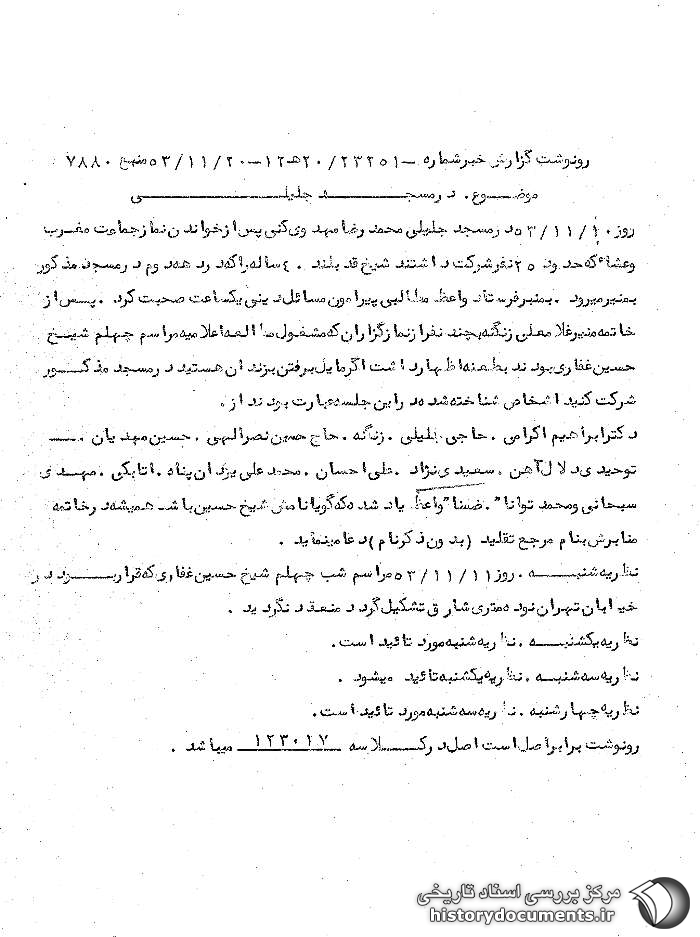 رونوشت گزارش خبر شماره ـ ۲۳۲۵۱/۲۰هـ۱۲ـ۵۳/۱۱/۲۰ منبع ۷۸۸۰
موضوع . در مسجد جلیلی
روز ۵۳/۱۱/۱۰ در مسجد جلیلی محمد رضا مهدوی کنی پس از خواندن نماز جماعت مغرب
و عشاء که حدود ۲۵ نفر شرکت داشتند شیخ قد بلند . ۴ ساله را که در دهه دوم در مسجد مذکور
بمنبر میرود . بمنبر فرستاد واعظ مطالبی پیرامون مسائل دینی یکساعت صحبت کرد . پس از
خاتمه منبر غلامعلی زنگنه بچند نفر از نمازگزاران که مشغول مطالعه اعلامیه مراسم چهلم شیخ
حسین غفاری بودند بطعنه اظهار داشت اگر مایل برفتن بزندان هستید در مسجد مذکور
شرکت کنید اشخاص شناخته شده در این جلسه عبارت بودند از .
دکتر ابراهیم اکرامی . حاجی جلیلی . زنگنه . حاج حسین نصرالهی . حسین مهدیان .
توحیدی دلال آهن . سعیدی نژاد . علی احسان . محمد علی یزدان پناه . اتابکی . مهدی
سبحانی و محمد توانا" . ضمنا" واعظ یاد شده که گویا نامش شیخ حسین باشد همیشه در خاتمه
منابرش بنام مرجع تقلید (بدون ذکر نام) دعا مینماید .
نظریه شنبه . روز ۵۳/۱۱/۱۱ مراسم شب چهلم شیخ حسین غفاری که قرار بود در
خیابان تهران نو ده متری شارق تشکیل گردد منعقد نگردید .
نظریه یکشنبه . نظریه شنبه مورد تائید است .
نظریه سه شنبه . نظریه یکشنبه تائید میشود .
نظریه چهارشنبه . نظریه سه شنبه مورد تائید است .
رونوشت برابر اصل است اصل در کلاسه ۱۲۳۰۱۷ میباشد .
مرکز بررسی اسناد تاریخی
historydocuments.ir